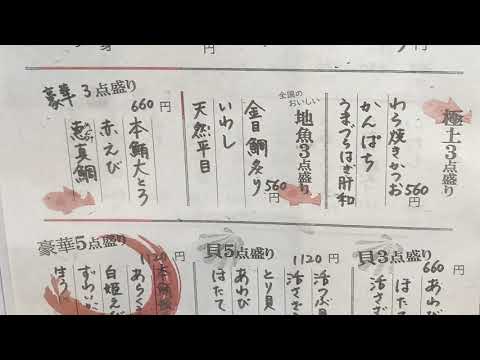 極上3点盛り
わら焼きかつお
かんぱち
うまづらはぎ肝和
560円
全国の
おいしい
地魚3点盛り
金目鯛炙り
いわし
天然平目
560円
豪華3点盛り
660円
本鮪大とろ
赤えび
真鯛
貝3点盛り
660円
あわび
ほたて
活さざ
貝5点盛り
1120円
活つぶ貝
活さざ
とり貝
あわび
ほたて
豪華5点盛り
1120円
本鮪
あらく
白姫え
ずわい